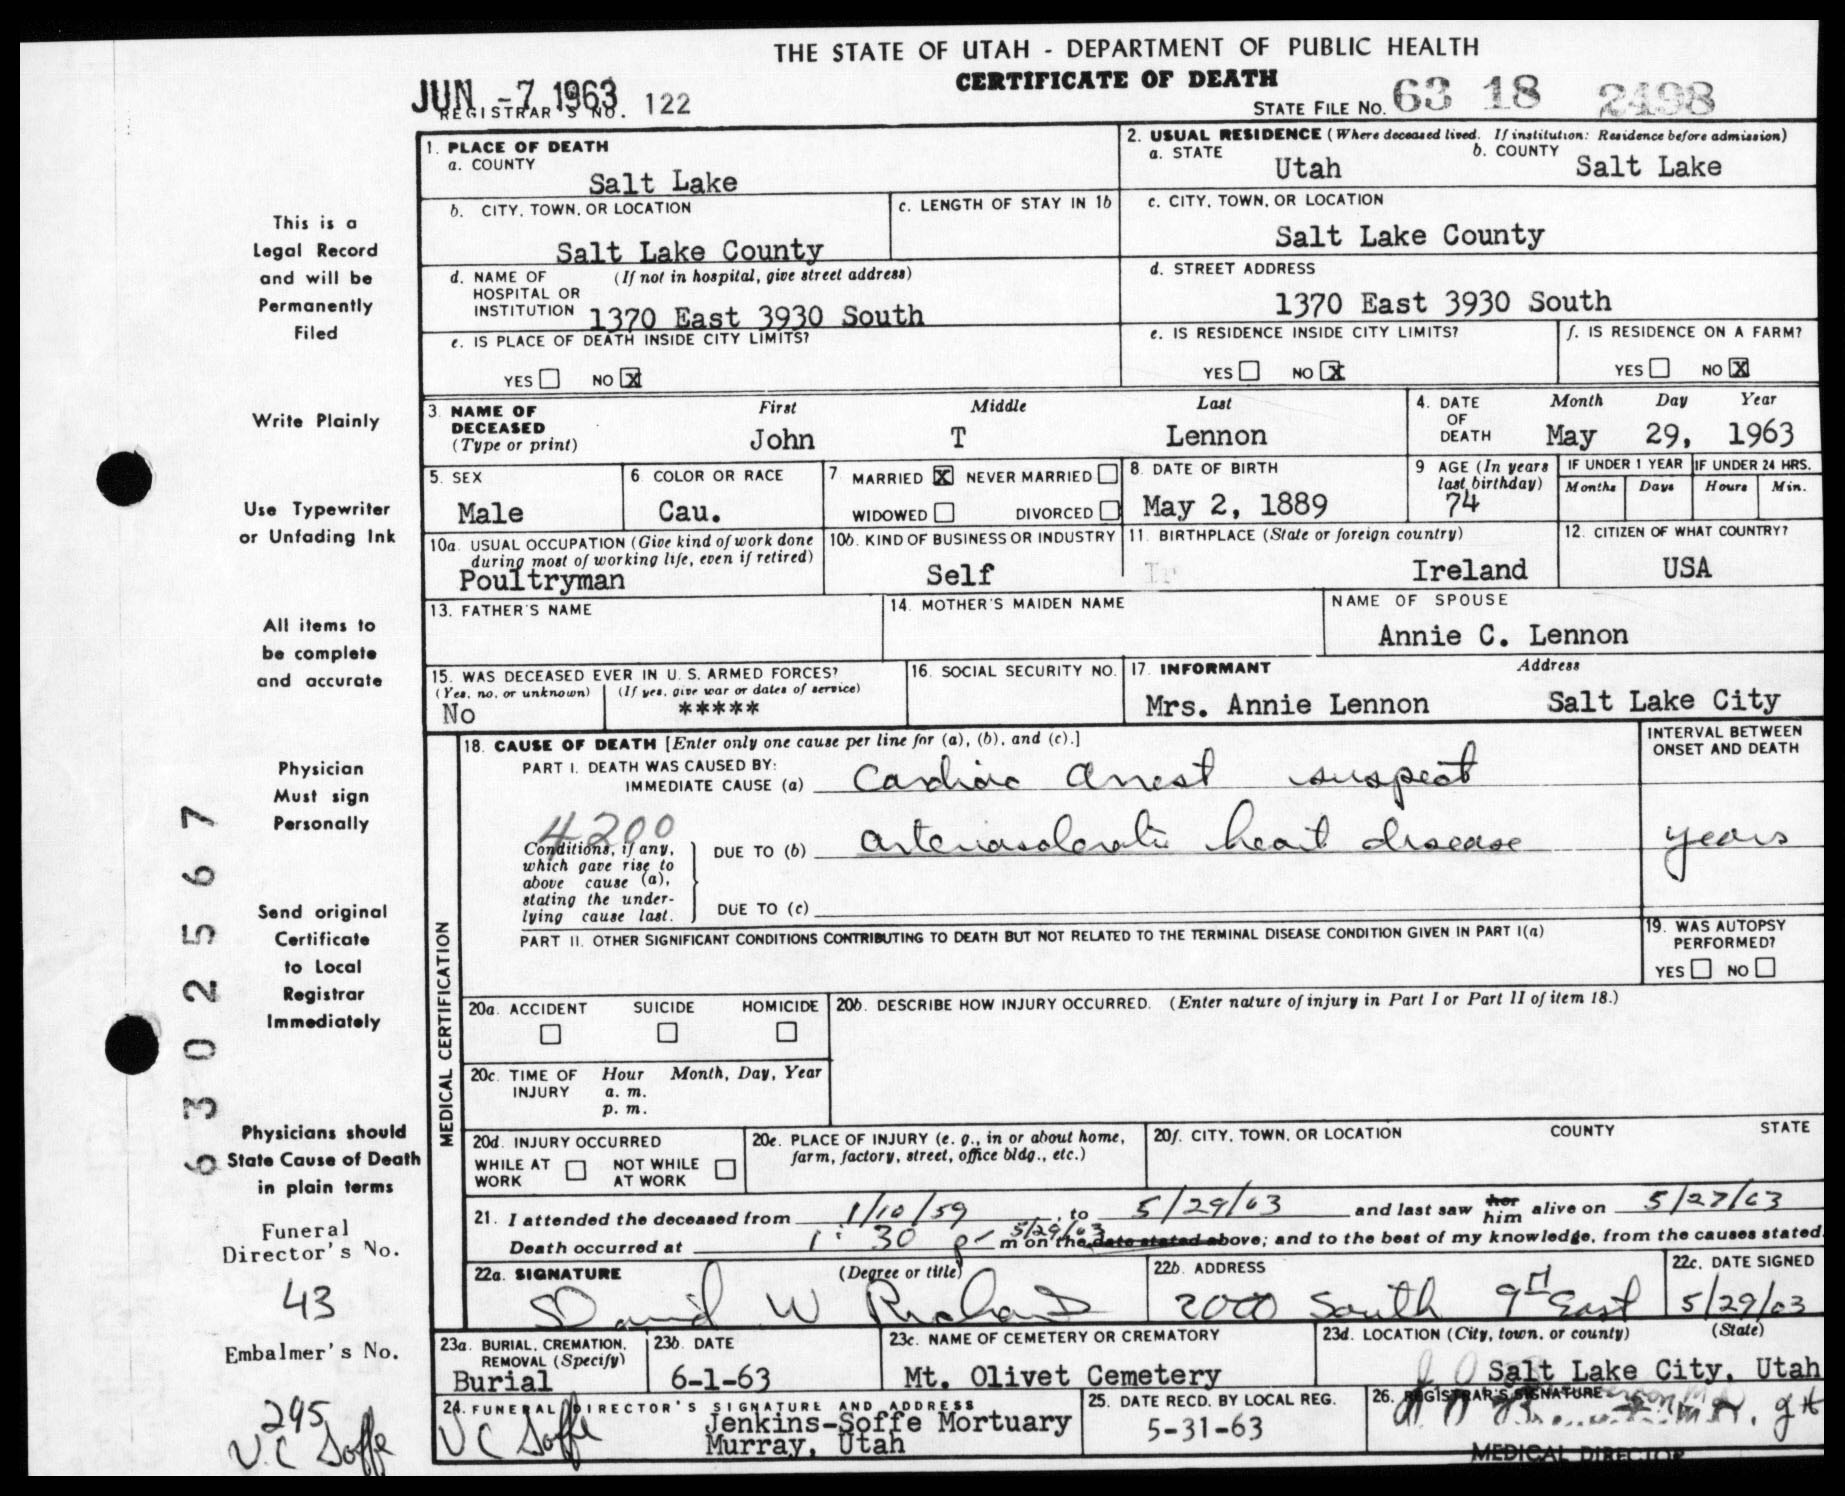 THE STATE OF UTAH - DEPARTMENT OF PUBLIC HEALTH
CERTIFICATE OF DEATH
JUN -7 1963
REGISTRAR'S NO. 122
STATE FILE NO. 63 18 2498
This is a
Legal Record
and will be
Permanently
Filed
Write Plainly
Use Typewriter
or Unfading Ink
All items to
be complete
and accurate
Physician
Must sign
Personally
Send original
Certificate
to Local
Registrar
Immediately
Physicians should
State Cause of Death
in plain terms
Funeral
Director's No.
43
Embalmer's No.
295
V.C Soffe
6302567
1. PLACE OF DEATH
a. COUNTY
Salt Lake
2. USUAL RESIDENCE (Where deceased lived. If institution: Residence before admission)
a. STATE Utah b. COUNTY Salt Lake
b. CITY, TOWN, OR LOCATION
Salt Lake County
c. LENGTH OF STAY IN 1b
c. CITY, TOWN, OR LOCATION
Salt Lake County
d. NAME OF (If not in hospital, give street address)
HOSPITAL OR
INSTITUTION 1370 East 3930 South
d. STREET ADDRESS
1370 East 3930 South
e. IS PLACE OF DEATH INSIDE CITY LIMITS?
YES NO X
e. IS RESIDENCE INSIDE CITY LIMITS?
YES NO X
f. IS RESIDENCE ON A FARM?
YES NO X
3. NAME OF First Middle Last
DECEASED
(Type or print) John T Lennon
4. DATE Month Day Year
OF
DEATH May 29, 1963
5. SEX
Male
6. COLOR OR RACE
Cau.
7. MARRIED X NEVER MARRIED
WIDOWED DIVORCED
8. DATE OF BIRTH
May 2, 1889
9 AGE (In years
last birthday)
74
IF UNDER 1 YEAR
Months Days
IF UNDER 24 HRS.
Hours Min.
10a. USUAL OCCUPATION (Give kind of work done
during most of working life, even if retired)
Poultryman
10b. KIND OF BUSINESS OR INDUSTRY
Self
11. BIRTHPLACE (State or foreign country)
Ir Ireland
12. CITIZEN OF WHAT COUNTRY?
USA
13. FATHER'S NAME
14. MOTHER'S MAIDEN NAME
NAME OF SPOUSE
Annie C. Lennon
15. WAS DECEASED EVER IN U. S. ARMED FORCES?
(Yes, no, or unknown) (If yes, give war or dates of service)
No *****
16. SOCIAL SECURITY NO.
17. INFORMANT Address
Mrs. Annie Lennon Salt Lake City
MEDICAL CERTIFICATION
18. CAUSE OF DEATH [Enter only one cause per line for (a), (b), and (c).]
PART I. DEATH WAS CAUSED BY:
IMMEDIATE CAUSE (a) Cardiac Arrest suspect
INTERVAL BETWEEN
ONSET AND DEATH
4200
Conditions, if any,
which gave rise to
above cause (a),
stating the under-
lying cause last.
DUE TO (b) arteriosclerotic heart disease years
DUE TO (c)
PART II. OTHER SIGNIFICANT CONDITIONS CONTRIBUTING TO DEATH BUT NOT RELATED TO THE TERMINAL DISEASE CONDITION GIVEN IN PART I(a)
19. WAS AUTOPSY
PERFORMED?
YES NO
20a. ACCIDENT SUICIDE HOMICIDE
20b. DESCRIBE HOW INJURY OCCURRED. (Enter nature of injury in Part I or Part II of item 18.)
20c. TIME OF Hour Month, Day, Year
INJURY a. m.
p. m.
20d. INJURY OCCURRED
WHILE AT NOT WHILE
WORK AT WORK
20e. PLACE OF INJURY (e. g., in or about home,
farm, factory, street, office bldg., etc.)
20f. CITY, TOWN, OR LOCATION COUNTY STATE
21. I attended the deceased from 1/10/59, to 5/29/63 and last saw her him alive on 5/27/63
Death occurred at 1:30 p m on the 5/29/63 date stated above; and to the best of my knowledge, from the causes stated.
22a. SIGNATURE (Degree or title)
David W Richards
22b. ADDRESS
2000 South 9th East
22c. DATE SIGNED
5/29/63
23a. BURIAL, CREMATION,
REMOVAL (Specify)
Burial
23b. DATE
6-1-63
23c. NAME OF CEMETERY OR CREMATORY
Mt. Olivet Cemetery
23d. LOCATION (City, town, or county) (State)
Salt Lake City, Utah
24. FUNERAL DIRECTOR'S SIGNATURE AND ADDRESS
V C Soffe Jenkins-Soffe Mortuary
Murray, Utah
25. DATE RECD. BY LOCAL REG.
5-31-63
26. REGISTRAR'S SIGNATURE
MEDICAL DIRECTOR